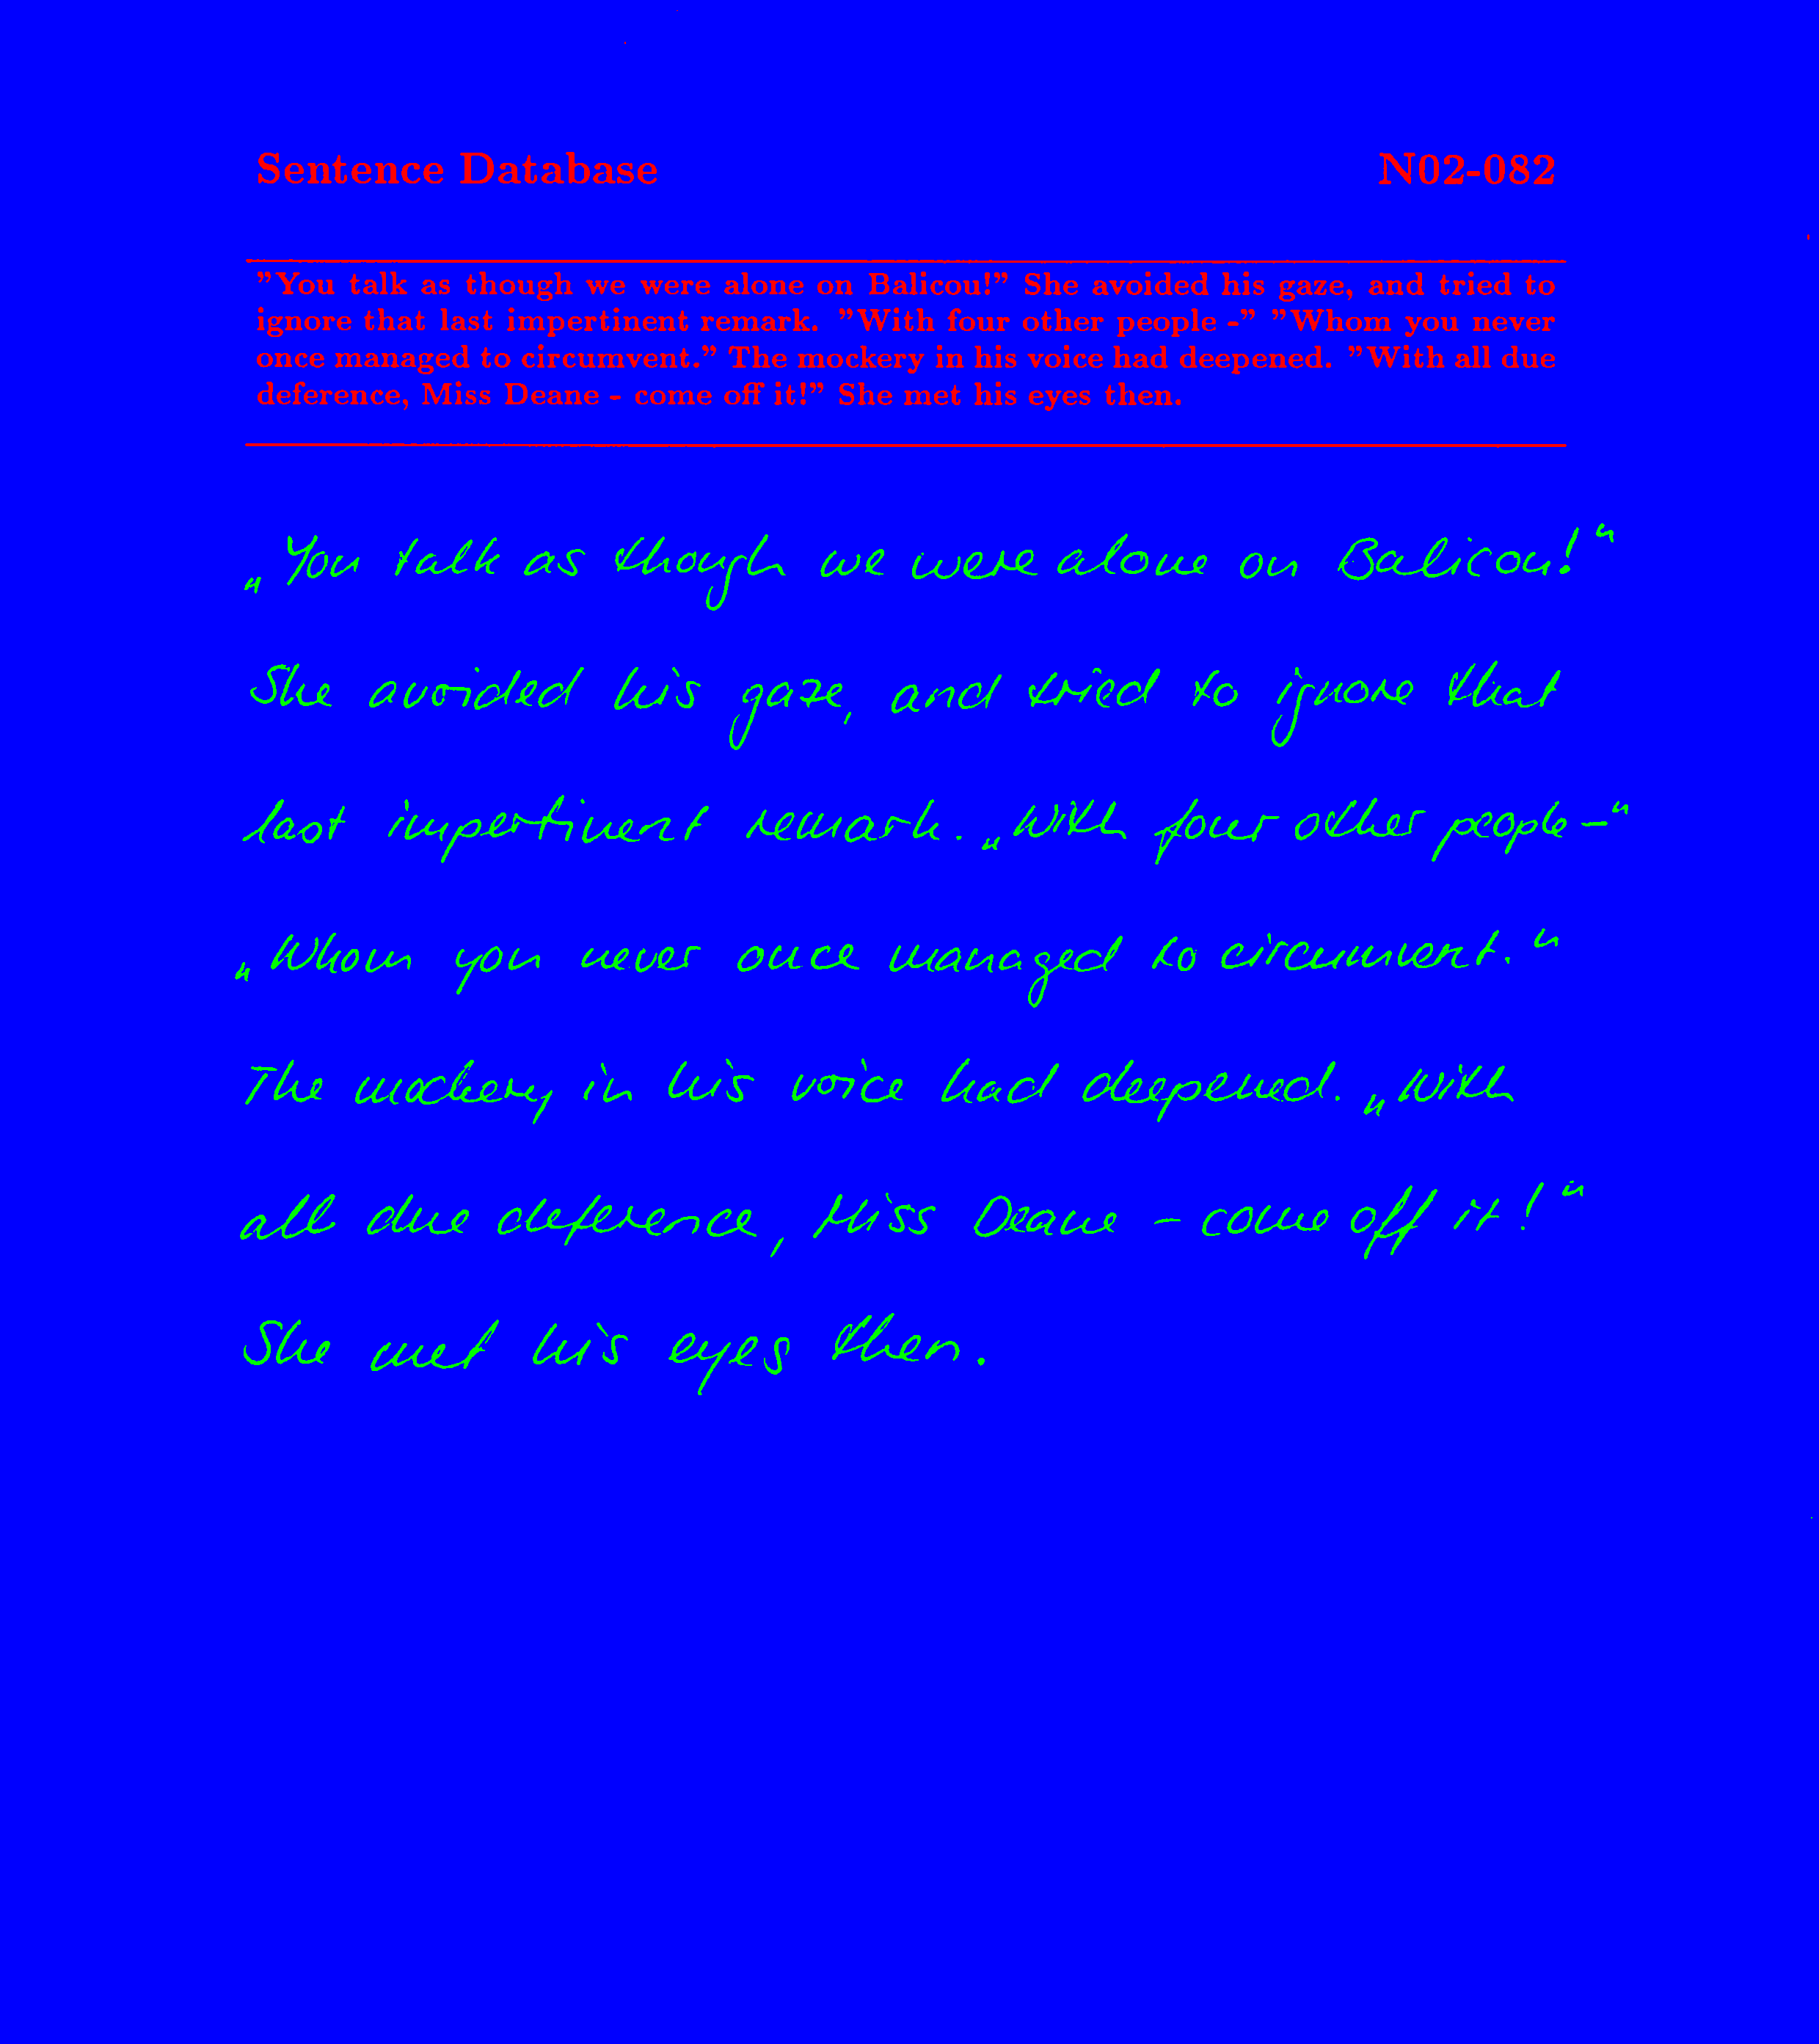 Sentence Database N02-082
"You talk as though we were alone on Balicou!" She avoided his gaze, and tried to
ignore that last impertinent remark. "With four other people -" "Whom you never
once managed to circumvent." The mockery in his voice had deepened. "With all due
deference, Miss Deane - come off it!" She met his eyes then.
„You talk as though we were alone on Balicou!“
She avoided his gaze, and tried to ignore that
last impertinent remark. „With four other people -“
„Whom you never once managed to circumvent.“
The mockery in his voice had deepened. „With
all due deference, Miss Deane - come off it!“
She met his eyes then.